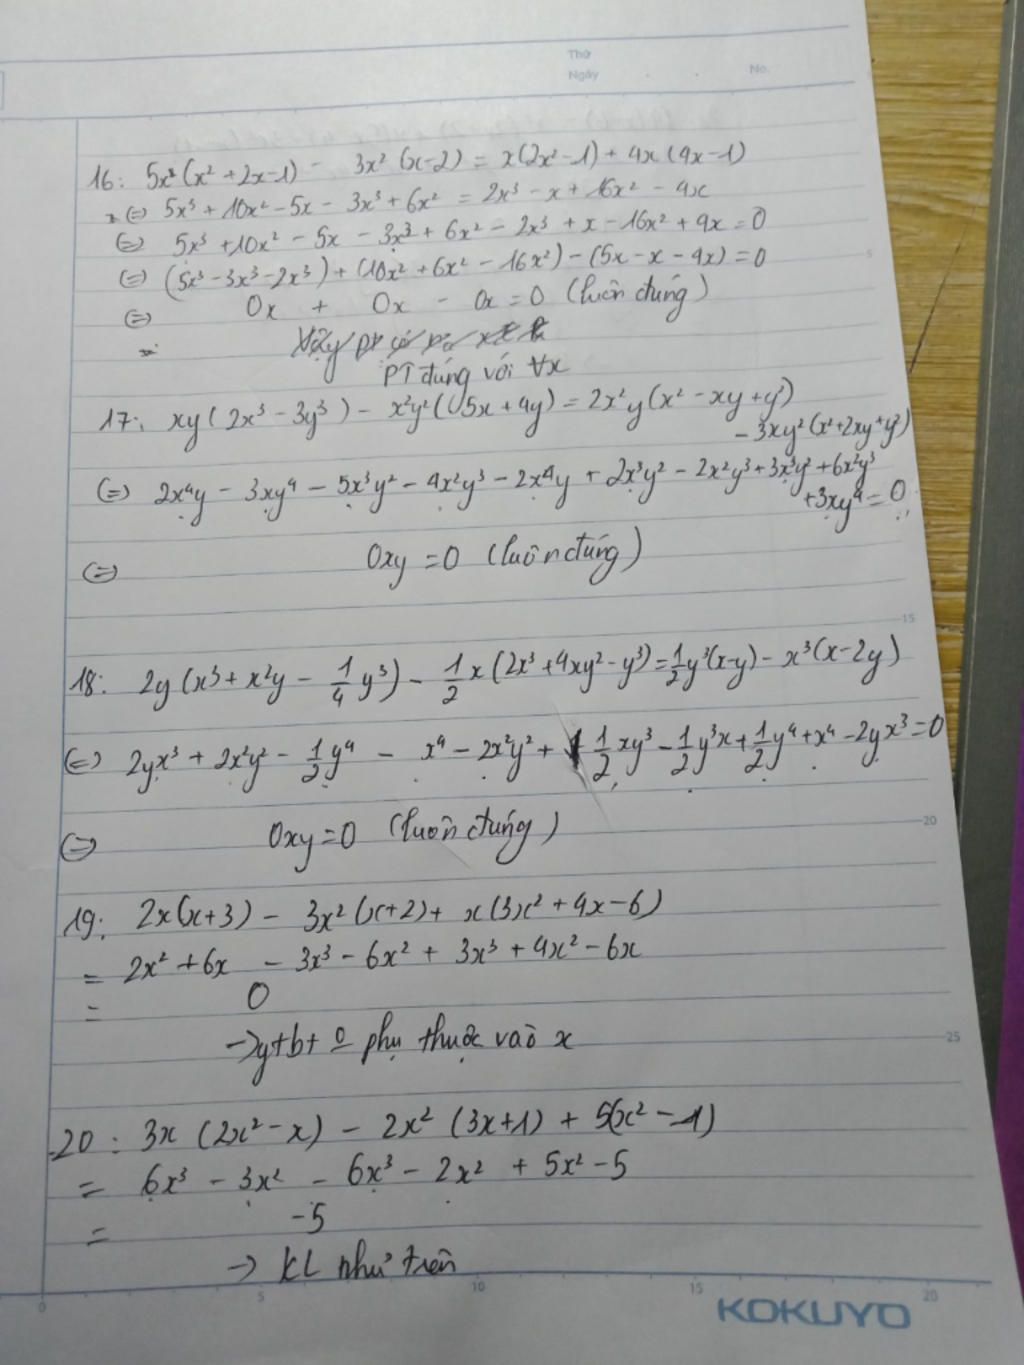 Thứ
Ngày . . No.
16: 5x(x² + 2x - 1) - 3x²(x-2) = x(2x²-1) + 4x(4x-1)
(=) 5x³ + 10x² - 5x - 3x³ + 6x² = 2x³ - x + 16x² - 4x
(=) 5x³ + 10x² - 5x - 3x³ + 6x² - 2x³ + x - 16x² + 4x = 0
(=) (5x³ - 3x³ - 2x³) + (10x² + 6x² - 16x²) - (5x - x - 4x) = 0
(=) 0x + 0x - 0x = 0 (luôn đúng)
PT đúng với ∀x
17: xy(2x³ - 3y³) - x²y²(5x + 4y) = 2x²y(x² - xy + y²)
- 3xy²(x² + 2xy + y²)
(=) 2x⁴y - 3xy⁴ - 5x³y² - 4x²y³ - 2x⁴y + 2x³y² - 2x²y³ + 3x³y² + 6x²y³
+ 3xy⁴ = 0
(=) 0xy = 0 (luôn đúng)
15
18: 2y(x³ + x²y - 1/4 y³) - 1/2 x(2x³ + 4xy² - y³) = 1/2 y³(x-y) - x³(x-2y)
(=) 2yx³ + 2x²y² - 1/2 y⁴ - x⁴ - 2x²y² + 1/2 xy³ - 1/2 y³x + 1/2 y⁴ + x⁴ - 2yx³ = 0
20
(=) 0xy = 0 (luôn đúng)
19: 2x(x+3) - 3x²(x+2) + x(3x² + 4x - 6)
= 2x² + 6x - 3x³ - 6x² + 3x³ + 4x² - 6x
= 0
→ gtbt o̲ phụ thuộc vào x
25
20: 3x(2x² - x) - 2x²(3x+1) + 5(x² - 1)
= 6x³ - 3x² - 6x³ - 2x² + 5x² - 5
= -5
→ KL như trên
0 5 10 15 20
KOKUYO